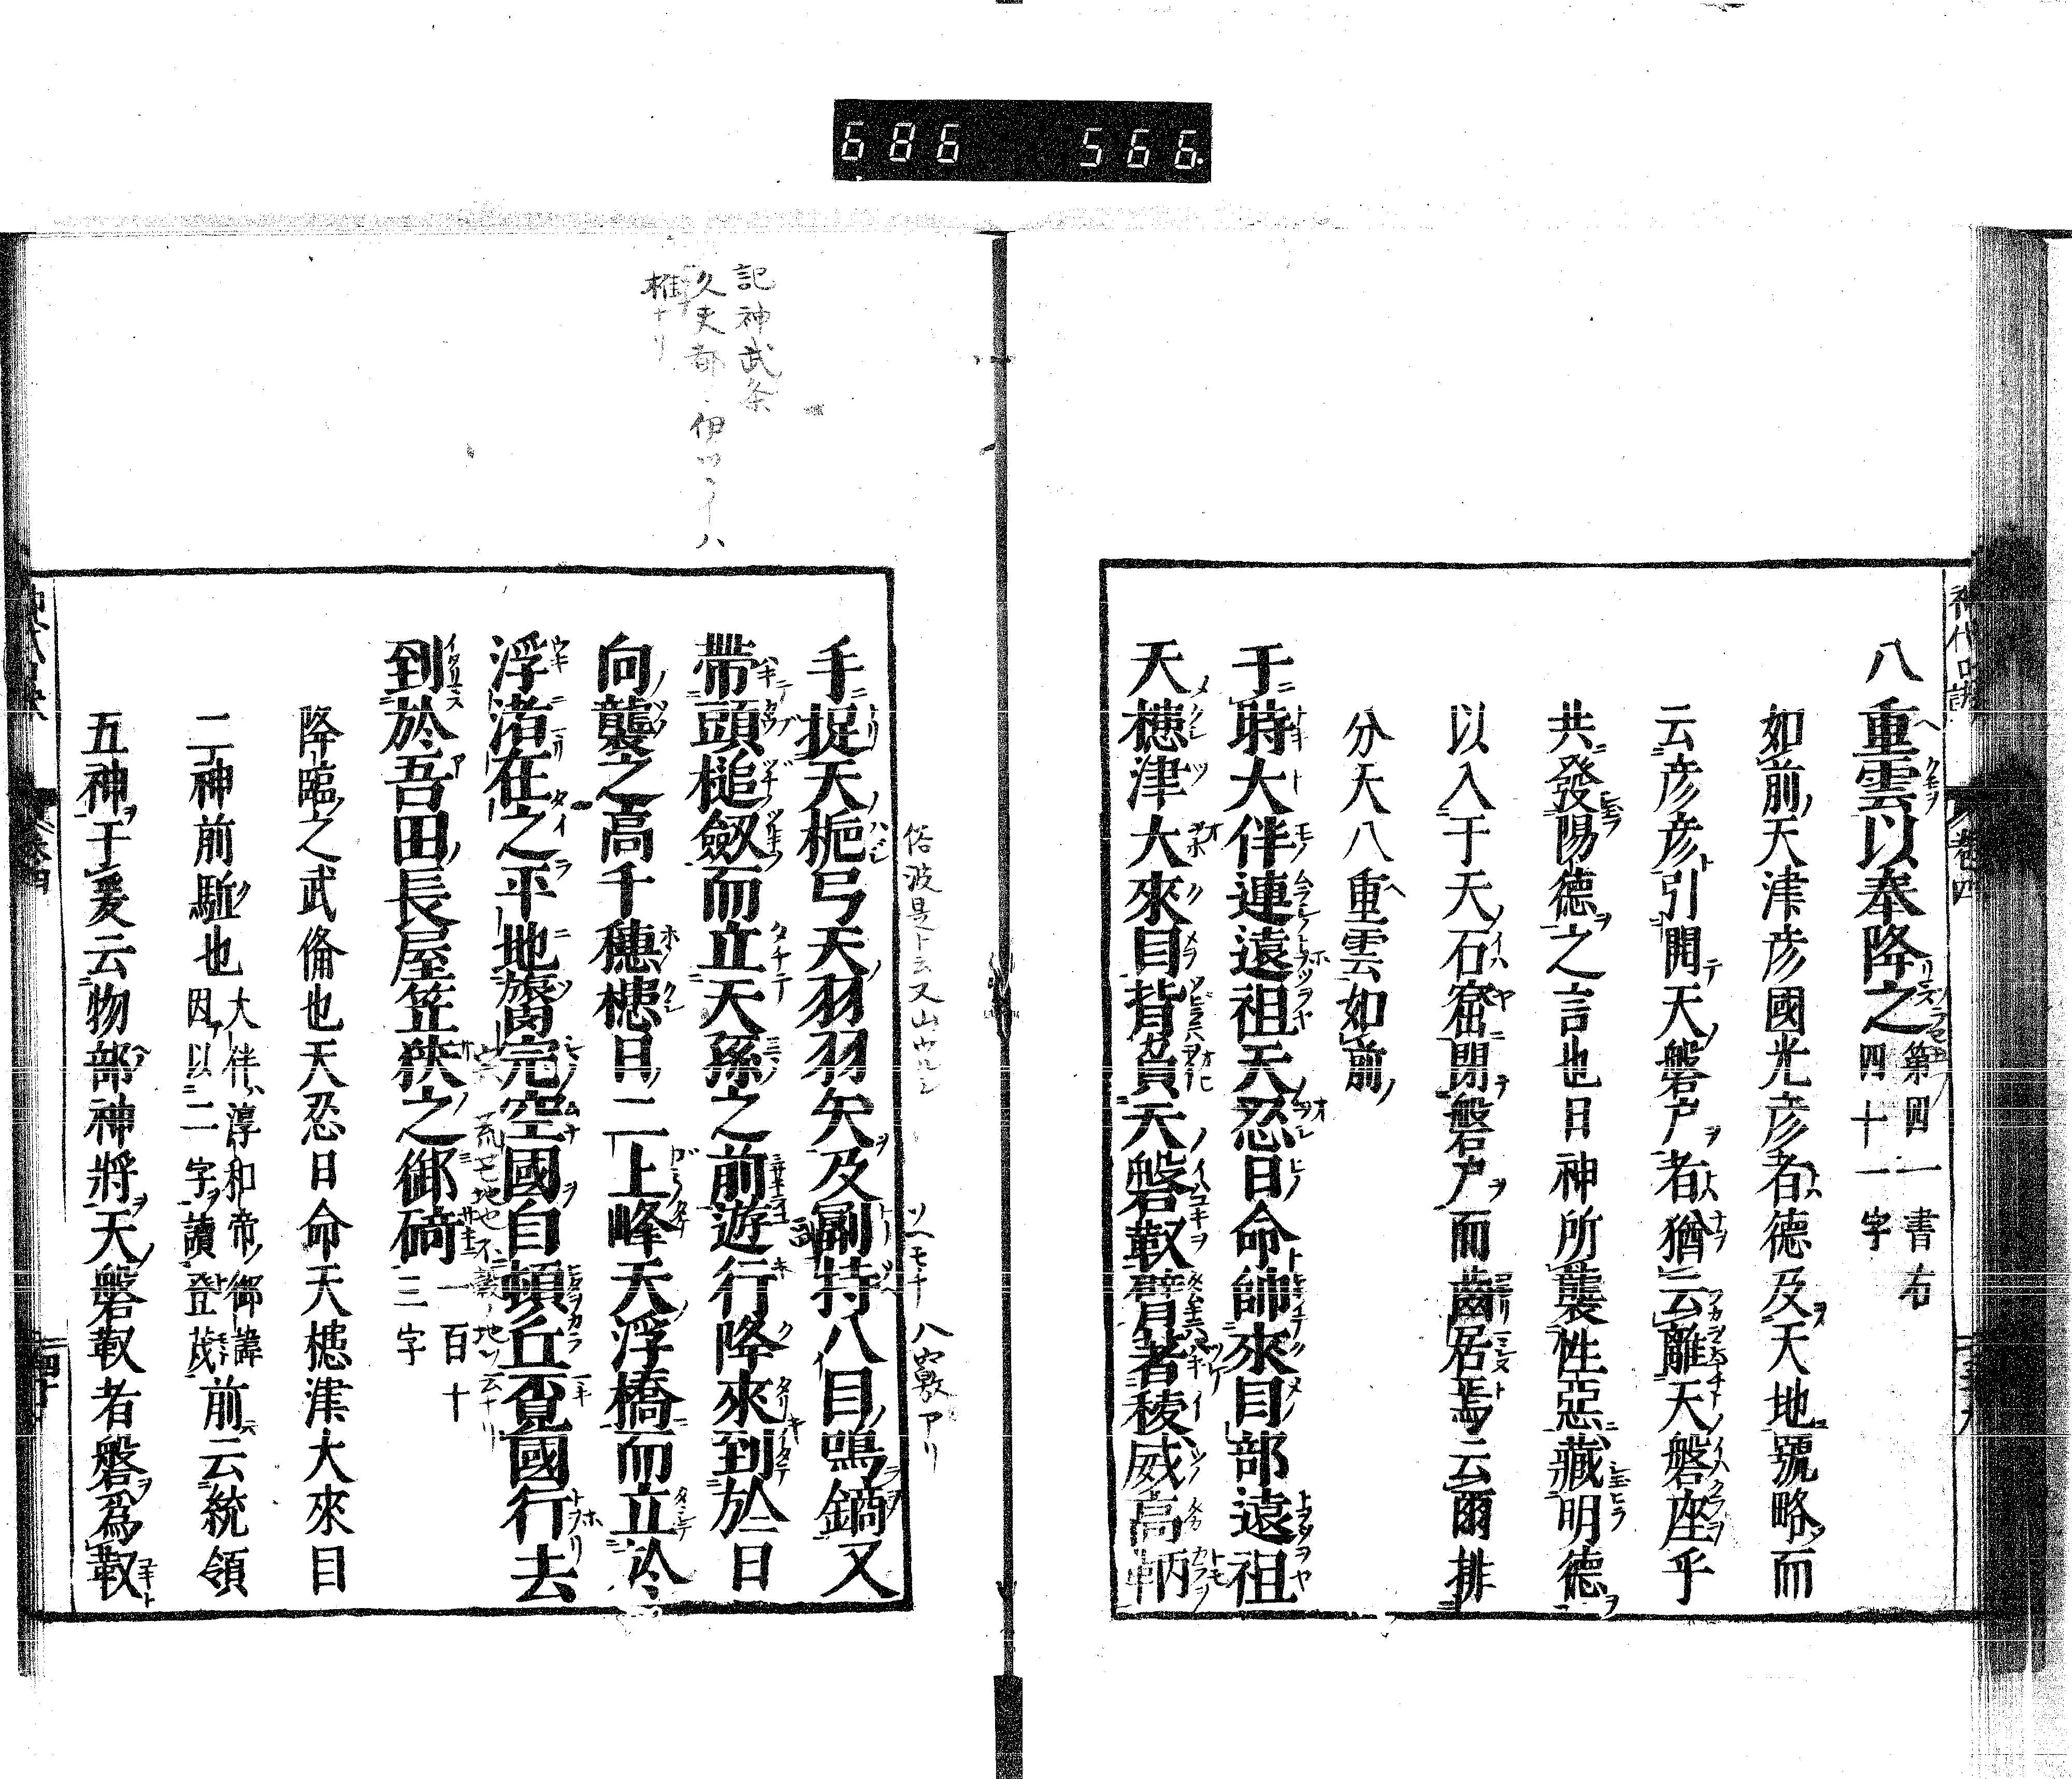 686 566
八重雲以奉降之 第四一書右四十一字
如前天津彦國光彦者德及天地號略而
云彦彦引開天磐戸者猶云離天磐座乎
共發陽德之言也日神所襲性惡藏明德
以入于天石窟閉磐戸而齒居焉云爾排
分天八重雲如前
于時大伴連遠祖天忍日命帥來目部遠祖
天槵津大來目背負天磐靫臂著稜威高鞆
手捉天梔弓天羽羽矢及副持八目鳴鏑又
帶頭槌劔而立天孫之前遊行降來到於日
向襲之高千穗槵日二上峰天浮橋而立於
浮渚在之平地膂宍空國自頓丘覓國行去
到於吾田長屋笠狹之御碕 一百十三字
降臨之武備也天忍日命天槵津大來目
二神前駈也 大伴淳和帝御諱因以二字讀登茂 前云統領
五神于爰云物部神將天磐靫者磐爲靫
記神武条
久夫都々伊
椎ナリ
俗波是ト云又山ウルシ
八ツ敷アリ